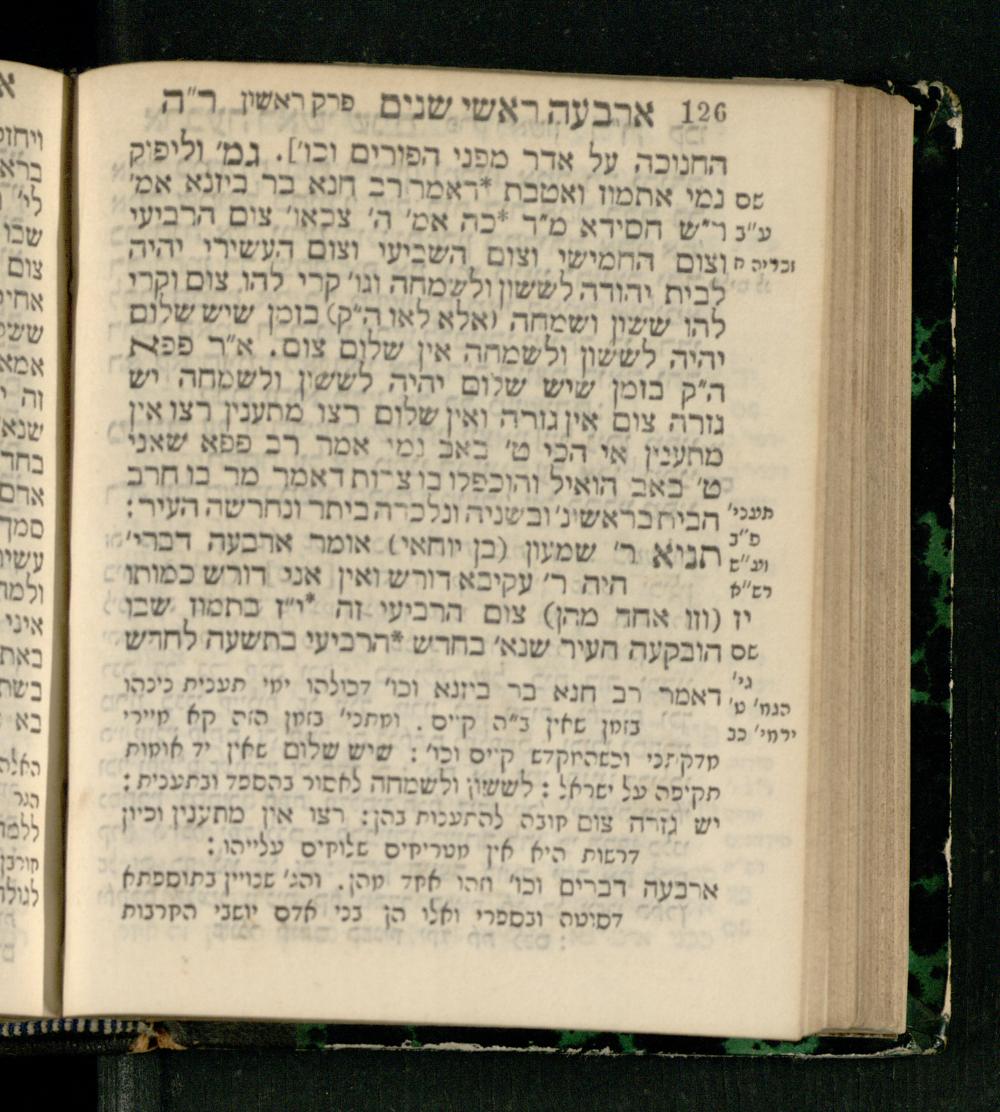 126 ארבעה ראשי שנים פרק ראשון ר"ה
החנוכה על אדר מפני הפורים וכו']. גמ' וליפוק
שס נמי אתמוז ואטבת *דאמר רב חנא בר ביזנא אמ'
ע"ב ר"ש חסידא מ"ד *כה אמ' ה' צבאו' צום הרביעי
זכריה ח וצום החמישי וצום השביעי וצום העשירי יהיה
לבית יהודה לששון ולשמחה וגו' קרי להו צום וקרי
להו ששון ושמחה (אלא לאו ה"ק) בזמן שיש שלום
יהיה לששון ולשמחה אין שלום צום. א"ר פפא
ה"ק בזמן שיש שלום יהיה לששון ולשמחה יש
גזרה צום אין גזרה ואין שלום רצו מתענין רצו אין
מתענין אי הכי ט' באב נמי אמר רב פפא שאני
ט' באב הואיל והוכפלו בו צרות דאמר מר בו חרב
תעני' הבית בראשינ' ובשניה ונלכדה ביתר ונחרשה העיר:
פ"ב
תניא ר' שמעון (בן יוחאי) אומר ארבעה דברי'
וע"ש
רש"א היה ר' עקיבא דורש ואין אני דורש כמותו
יז (וזו אחד מהן) צום הרביעי זה *י"ז בתמוז שבו
שס הובקעה העיר שנא' בחדש *הרביעי בתשעה לחדש
גי'
דאמר רב חנא בר ביזנא וכו' דכולהו ימי תענית נינהו
הגמ' ט'
בזמן שאין ב"ה קיים. ומתני' בזמן הזה קא מיירי
ירמי' נב
מדקתני וכשהמקדש קיים וכו': שיש שלום שאין יד אומות
תקיפה על ישראל: לששון ולשמחה לאסור בהספד ובתענית:
יש גזרה צום חובה להתענות בהן: רצו אין מתענין וכיון
דרשות היא אין מטריחים שלוחים עלייהו:
ארבעה דברים וכו' וזהו אחד מהן. והג' שנויין בתוספתא
דסוטה ובספרי ואלו הן בני אדם יושבי החרבות